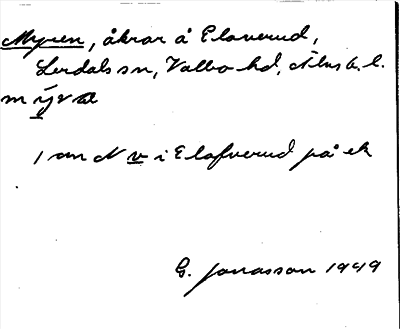 Myren, åkrar å Elaverud,
Lerdals sn, Valbo hd, Älvsb. l.
mýra
1 am N v i Elafverud på ek
G. Jonasson 1949